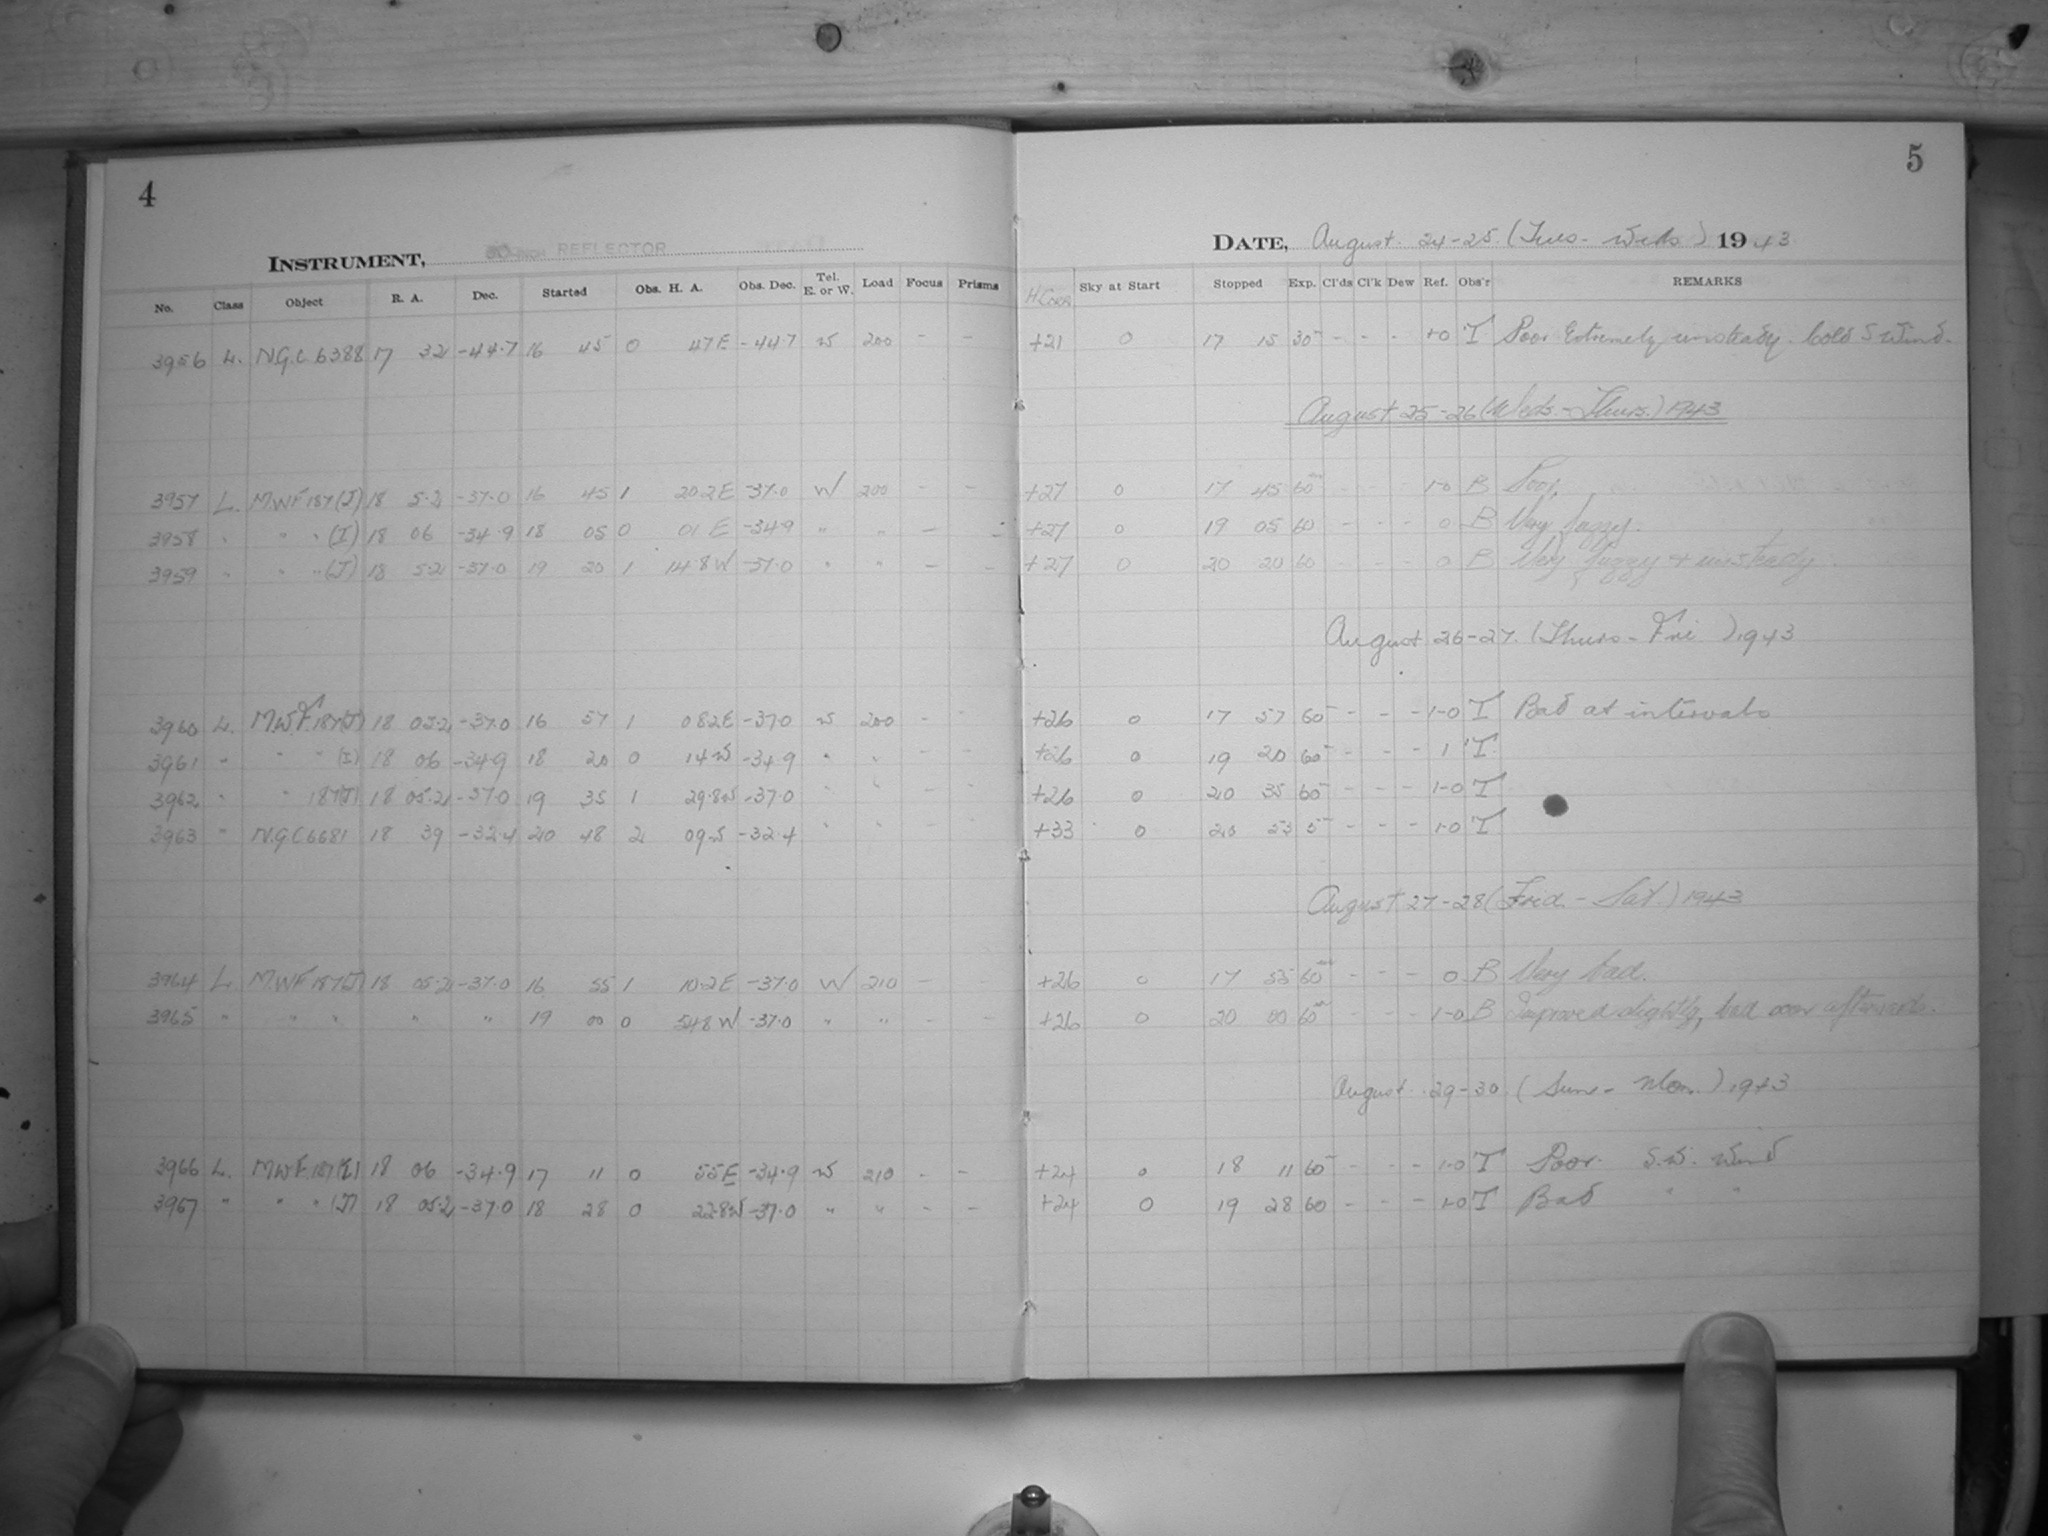 4
INSTRUMENT, REFLECTOR
No. Class Object R. A. Dec. Started Obs. H. A. Obs. Dec. Tel. E. or W. Load Focus Prisms
3956 L. N.G.C 6388 17 32 -44.7 16 45 0 47 E -44.7 W 200 - -
3957 L. M.W.F 187 (J) 18 5.2 -37.0 16 45 1 20.2 E -37.0 W 200 - -
3958 " " " (I) 18 06 -34.9 18 05 0 01 E -34.9 " " - -
3959 " " " (J) 18 5.2 -37.0 19 20 1 14.8 W -37.0 " " - -
3960 L. M.W.F 187(J) 18 05.2 -37.0 16 57 1 08.2 E -37.0 W 200 - -
3961 " " " (I) 18 06 -34.9 18 20 0 14 W -34.9 " " - -
3962 " " 187(J) 18 05.2 -37.0 19 35 1 29.8 W -37.0 " " - -
3963 " N.G.C 6681 18 39 -32.4 20 48 2 09 W -32.4 " " - -
3964 L. M.W.F 187(J) 18 05.2 -37.0 16 55 1 10.2 E -37.0 W 210 - -
3965 " " " " " 19 00 0 54.8 W -37.0 " " - -
3966 L. M.W.F. 187(I) 18 06 -34.9 17 11 0 55 E -34.9 W 210 - -
3967 " " " (J) 18 05.2 -37.0 18 28 0 22.8 W -37.0 " " - -
5
DATE, August 24-25 (Tues - Weds) 1943
H Corr Sky at Start Stopped Exp. Cl'ds Cl'k Dew Ref. Obs'r REMARKS
+21 0 17 15 30 - - - 1-0 T Poor Extremely unsteady. Cold S Wind.
August 25-26 (Weds.-Thurs.) 1943
+27 0 17 45 60 - - - 1-0 B Poor.
+27 0 19 05 60 - - - 0 B Very fuzzy.
+27 0 20 20 60 - - - 0 B Very fuzzy & unsteady.
August 26-27. (Thurs - Fri ) 1943
+26 0 17 57 60 - - - 1-0 T Bad at intervals
+26 0 19 20 60 - - - 1 T
+26 0 20 35 60 - - - 1-0 T
+33 0 20 53 5 - - - 1-0 T
August 27-28 (Frid. - Sat.) 1943
+26 0 17 55 60 - - - 0 B Very bad.
+26 0 20 00 60 - - - 1-0 B Improved slightly, bad afterwards.
August 29-30. (Sun - Mon. ) 1943
+24 0 18 11 60 - - - 1-0 T Poor. S.W. Wind
+24 0 19 28 60 - - - 1-0 T Bad " "